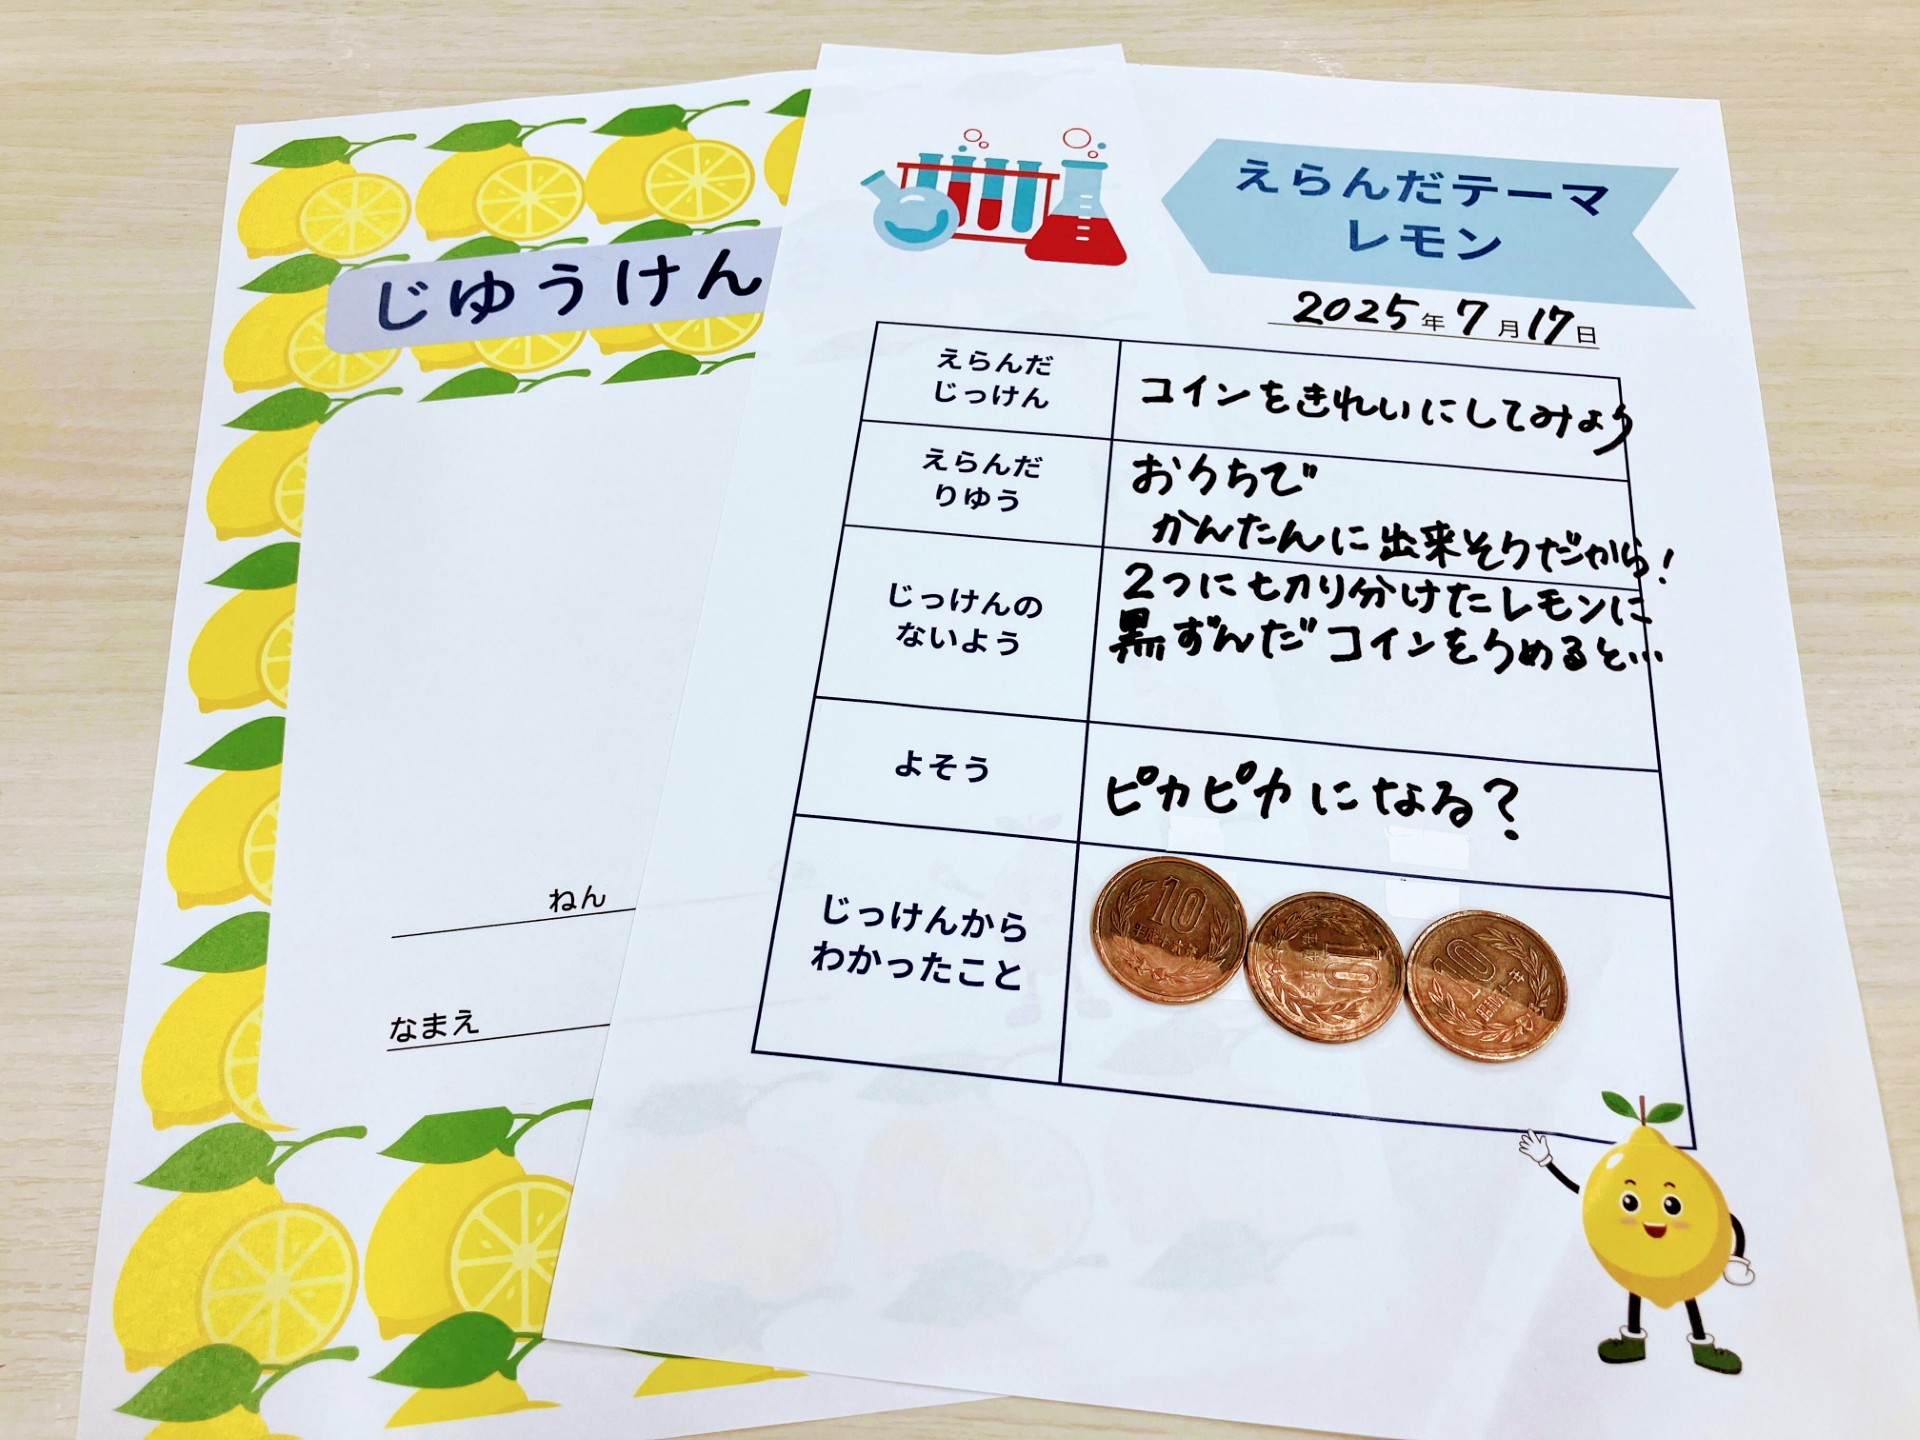 じゆうけん
ねん
なまえ
えらんだテーマ
レモン
2025年7月17日
えらんだ
じっけん
コインをきれいにしてみよう
えらんだ
りゆう
おうちで
かんたんに出来そうだから!
じっけんの
ないよう
2つに切り分けたレモンに
黒ずんだコインをうめると…
よそう
ピカピカになる?
じっけんから
わかったこと
10
10
10